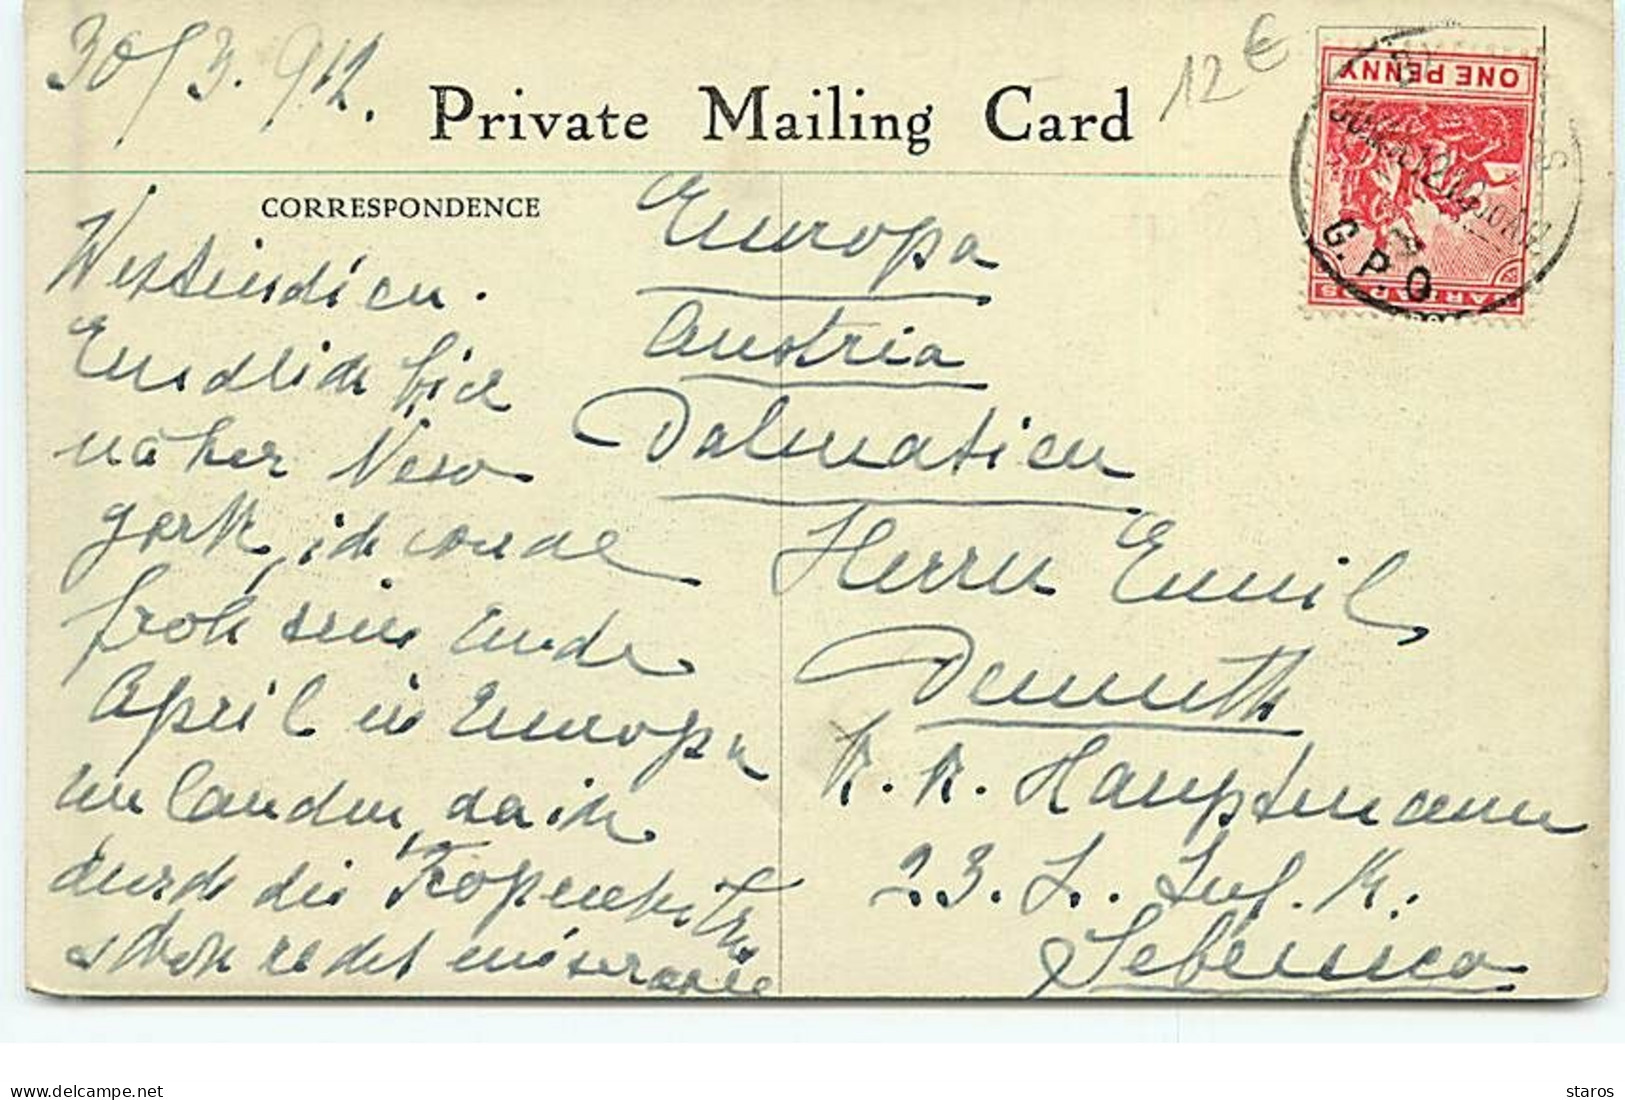 30/3. 912.
12 €
Private Mailing Card
ONE PENNY
BARBADOS
G.P.O
CORRESPONDENCE
Westindien.
Endlich bin
näher New
york, ich werde
froh sein Ende
April in Europa
zu landen, da ich
durch die Tropenhitze
schon redet miserable
Europa
Austria
Dalmatien
Herrn Emil
Demuth
K. K. Hauptmann
23. L. Inf. R.
Sebenico
staros